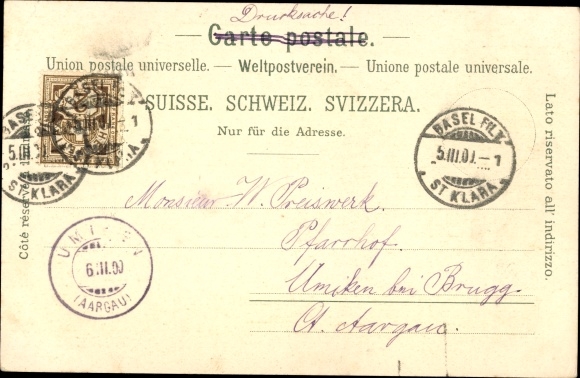 Drucksache!
— Carte postale. —
Union postale universelle. — Weltpostverein. — Unione postale universale.
SUISSE. SCHWEIZ. SVIZZERA.
Nur für die Adresse.
Côté réservé
Lato riservato all' indirizzo.
BASEL
5.III.0
ST KLARA
1
BASEL FIL.
5.III.0 – 1
ST KLARA
Monsieur W. Preiswerk.
Pfarrhof.
Umiken bei Brugg.
Ct. Aargau.
6.III.00
(AARGAU)